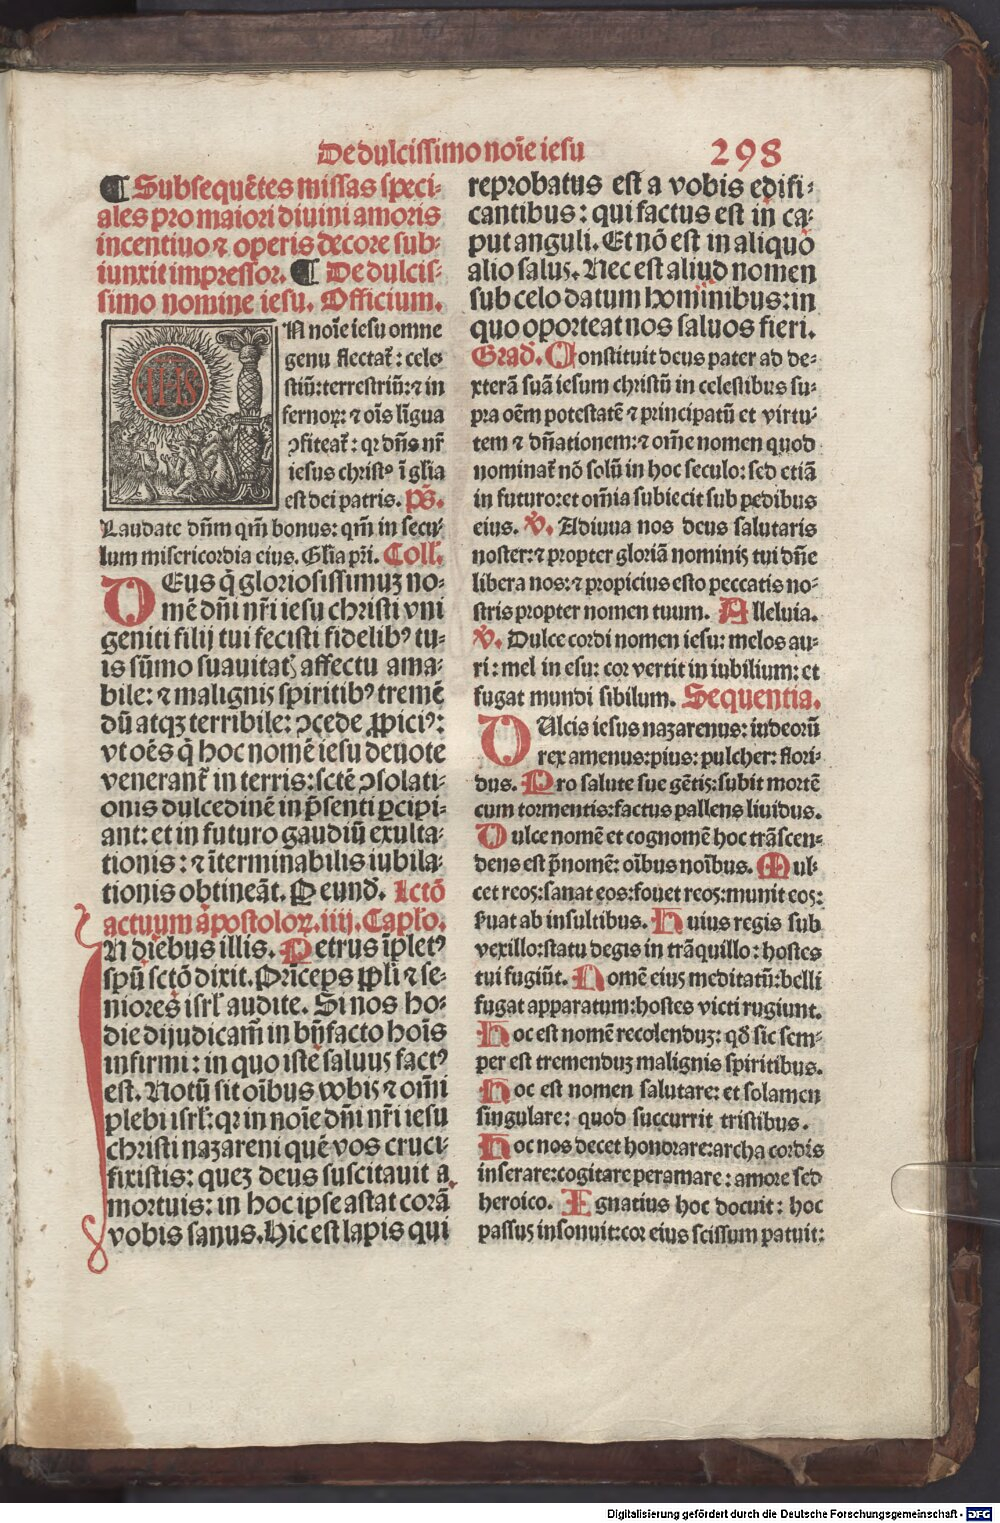 De dulcissimo noīe iesu 298
¶ Subsequētes missas speci⸗
ales pro maiori diuini amoris
incentiuo ⁊ operis decore sub⸗
iunxit impressor. ¶ De dulcis⸗
simo nomine iesu. Officium.
IN noīe iesu omne
genu flectat̄: cele⸗
stiū: terrestriū: ⁊ in
fernoꝝ: ⁊ oīs līgua
ꝯfiteat̄: qꝛ dn̄s nr̄
iesus christꝰ ī glīa
est dei patris. p̄s.
Laudate dn̄m qm̄ bonus: qm̄ in secu⸗
lum misericordia eius. Gl̄ia pr̄i. Coll̄.
DEus q̄ gloriosissimuȝ no⸗
mē dn̄i nr̄i iesu christi vni
geniti filij tui fecisti fidelibꝰ tu⸗
is sūmo suauitatꝭ affectu ama⸗
bile: ⁊ malignis spiritibꝰ tremē
dū atqꝫ terribile: ꝯcede ꝓpiciꝰ:
vt oēs q̄ hoc nomē iesu deuote
venerant̄ in terris: sctē ꝯsolati⸗
onis dulcedinē in p̄senti ꝑcipi⸗
ant: et in futuro gaudiū exulta⸗
tionis: ⁊ īterminabilis iubila⸗
tionis obtineāt. Per eund̄. Lctō
actuum apostoloꝝ. iiij. Caplo.
IN diebus illis. Petrus īpletꝰ
spū sctō dixit. Prīceps ꝓpli ⁊ se⸗
niores isrl̄ audite. Si nos ho⸗
die dijudicam̄ in bn̄facto hoīs
infirmi: in quo iste saluus factꝰ
est. Notū sit oībus vobis ⁊ om̄i
plebi isrl̄: qꝛ in noīe dn̄i nr̄i iesu
christi nazareni quē vos cruci⸗
fixistis: queȝ deus suscitauit a
mortuis: in hoc ipse astat corā
vobis sanus. Hic est lapis qui
reprobatus est a vobis edifi⸗
cantibus: qui factus est in ca⸗
put anguli. Et nō est in aliquo
alio salus. Nec est aliud nomen
sub celo datum hominibus: in
quo oporteat nos saluos fieri.
Grad̄. Constituit deus pater ad de⸗
xterā suā iesum christū in celestibus su⸗
pra oēm potestatē ⁊ principatū et virtu⸗
tem ⁊ dn̄ationem: ⁊ om̄e nomen quod
nominat̄ nō solū in hoc seculo: sed etiā
in futuro: et om̄ia subiecit sub pedibus
eius. ℣. Adiuua nos deus salutaris
noster: ⁊ propter gloriā nominis tui dn̄e
libera nos: ⁊ propicius esto peccatis no⸗
stris propter nomen tuum. Alleluia.
℣. Dulce cordi nomen iesu: melos au⸗
ri: mel in esu: cor vertit in iubilium: et
fugat mundi sibilum. Sequentia.
DUlcis iesus nazarenus: iudeorū
rex amenus: pius: pulcher: flori⸗
dus. Pro salute sue gētis: subit mortē
cum tormentis: factus pallens liuidus.
Dulce nomē et cognomē hoc trāscen⸗
dens est p̄nomē: oībus noībus. Mul⸗
cet reos: sanat eos: fouet reos: munit eos:
ẜuat ab insultibus. Huius regis sub
vexillo: statu degis in trāquillo: hostes
tui fugiūt. Nomē eius meditatū: belli
fugat apparatum: hostes victi rugiunt.
Hoc est nomē recolenduȝ: qđ sic sem⸗
per est tremenduȝ malignis spiritibus.
Hoc est nomen salutare: et solamen
singulare: quod succurrit tristibus.
Hoc nos decet honorare: archa cordis
inserare: cogitare peramare: amore sed
heroico. Ignatius hoc docuit: hoc
passus insonuit: cor eius scissum patuit:
IHS
Digitalisierung gefördert durch die Deutsche Forschungsgemeinschaft - DFG